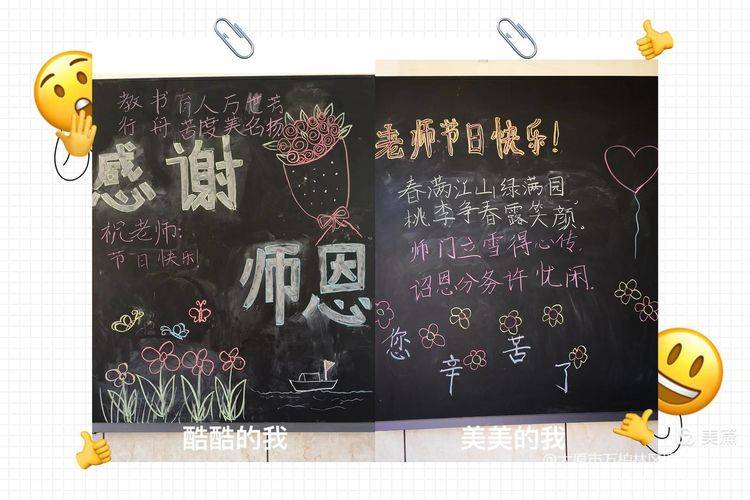 教书育人万世芳
行舟苦度美名扬
感谢
祝老师:
节日快乐
师恩
老师节日快乐!
春满江山绿满园,
桃李争春露笑颜。
师门立雪得心传,
诏恩分务许忧闲.
您辛苦了
酷酷的我
美美的我
美篇
@太原市万柏林区